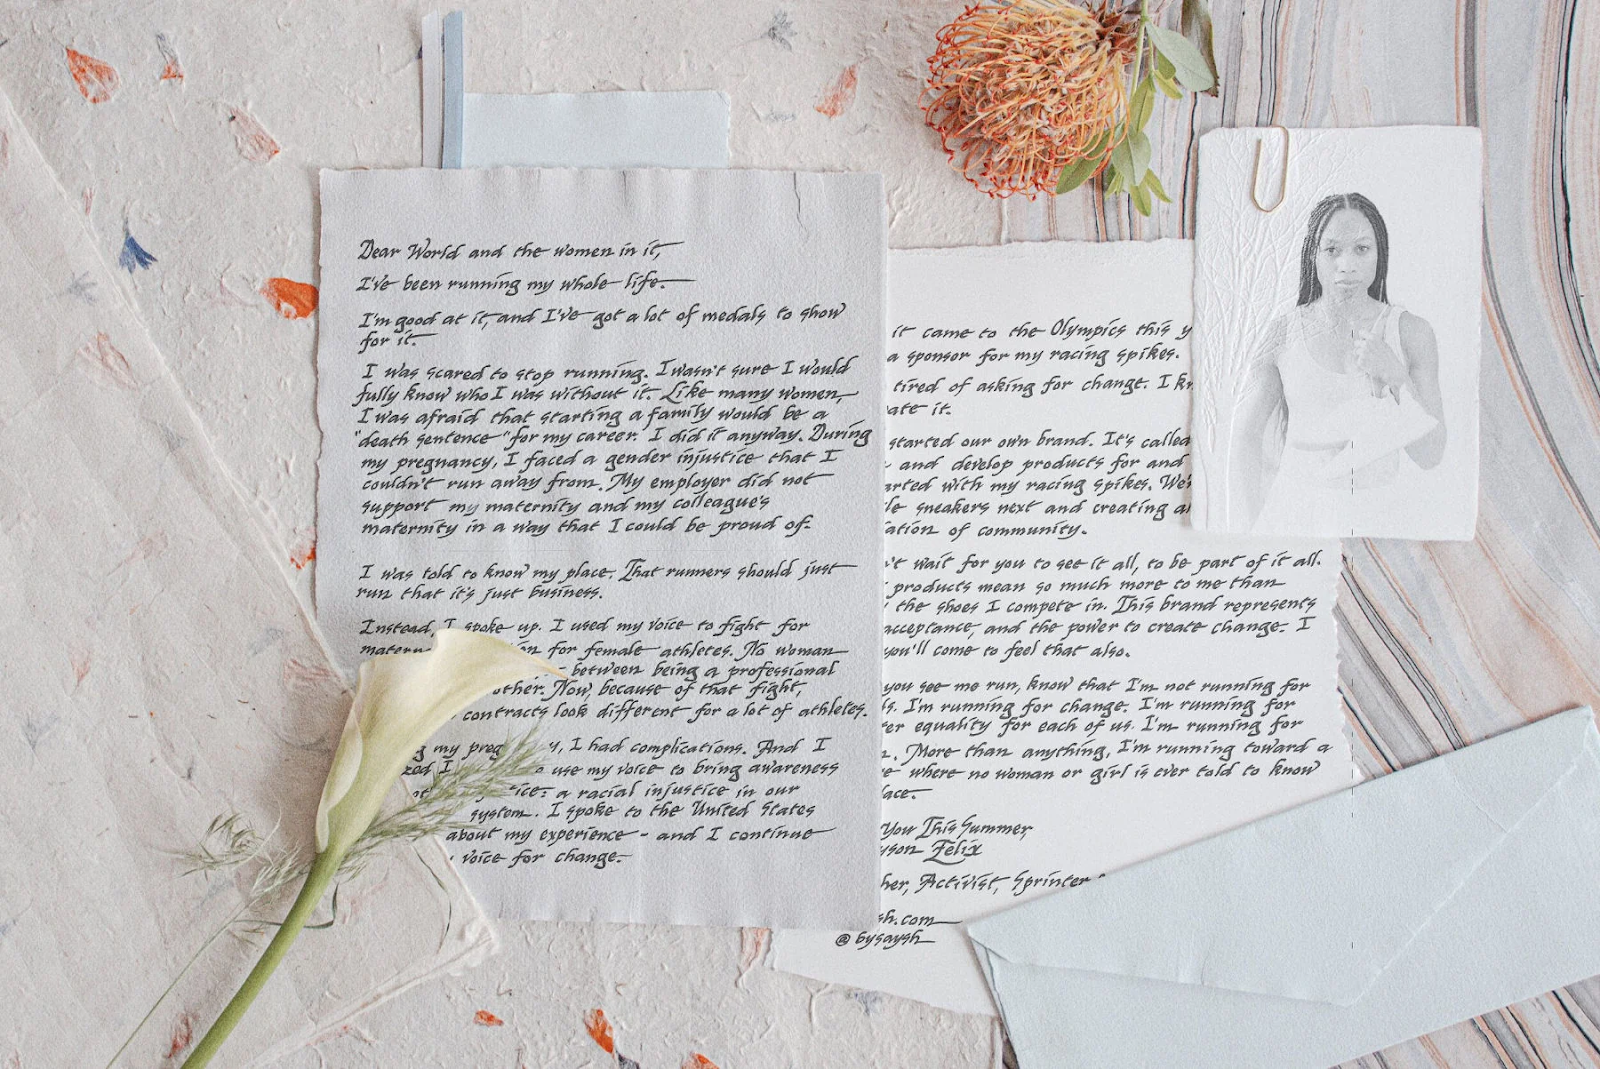 Dear World and the women in it,
I've been running my whole life.
I'm good at it, and I've got a lot of medals to show
for it.
I was scared to stop running. I wasn't sure I would
fully know who I was without it. Like many women,
I was afraid that starting a family would be a
"death sentence" for my career. I did it anyway. During
my pregnancy, I faced a gender injustice that I
couldn't run away from. My employer did not
support my maternity and my colleague's
maternity in a way that I could be proud of.
I was told to know my place. That runners should just
run that it's just business.
Instead, I spoke up. I used my voice to fight for
for female athletes. No woman
between being a professional
Now, because of that fight,
contracts look different for a lot of athletes.
my I had complications. And I
I use my voice to bring awareness
a racial injustice in our
system. I spoke to the United States
about my experience - and I continue
voice for change.
it came to the Olympics this
a sponsor for my racing spikes.
tired of asking for change. I
it.
started our own brand. It's called
and develop products for and
with my racing spikes.
sneakers next and creating
of community.
wait for you to see it all, to be part of it all.
products mean so much more to me than
the shoes I compete in. This brand represents
acceptance, and the power to create change. I
you'll come to feel that also.
you see me run, know that I'm not running for
I'm running for change. I'm running for
equality for each of us. I'm running for
More than anything, I'm running toward a
where no woman or girl is ever told to know
You This Summer
Felix
Activist, Sprinter
sh.com
@bysaysh